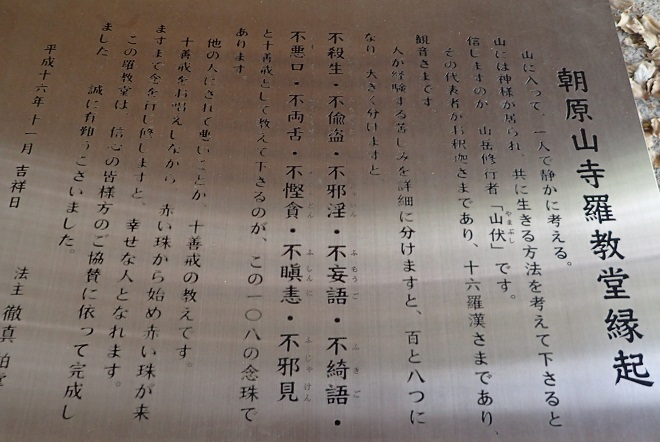 朝原山寺羅教堂縁起
山に入って、一人で静かに考える。
山には神様が居られ、共に生きる方法を考えて下さると
信しますのが 山岳修行者「山伏」です。
やまぶし
その代表者がお釈迦さまであり、十六羅漢さまであり
観音さまです
人が経験する苦しみを詳細に分けますと、百と八つに
なり 大きく分けますと
不殺生・不偸盗・不邪淫・不妄語・不綺語・
ふもうご
ふきご
不悪口・不両舌・不慳貪・不瞋恚・不邪見
ふしんに
ふじゃけん
と十善戒として教えて下さるのが、この一〇八の念珠で
あります
他の人にされて悪いことが 十善戒の教えです。
十善戒をお唱えしながら 赤い珠から始め赤い珠が来
ますまで念を行し修しますと、幸せな人となれます。
この羅教堂は、信心の皆様方のご協賛に依って完成し
ました 誠に有難うございました。
平成十六年十一月 吉祥日
法主 徹真